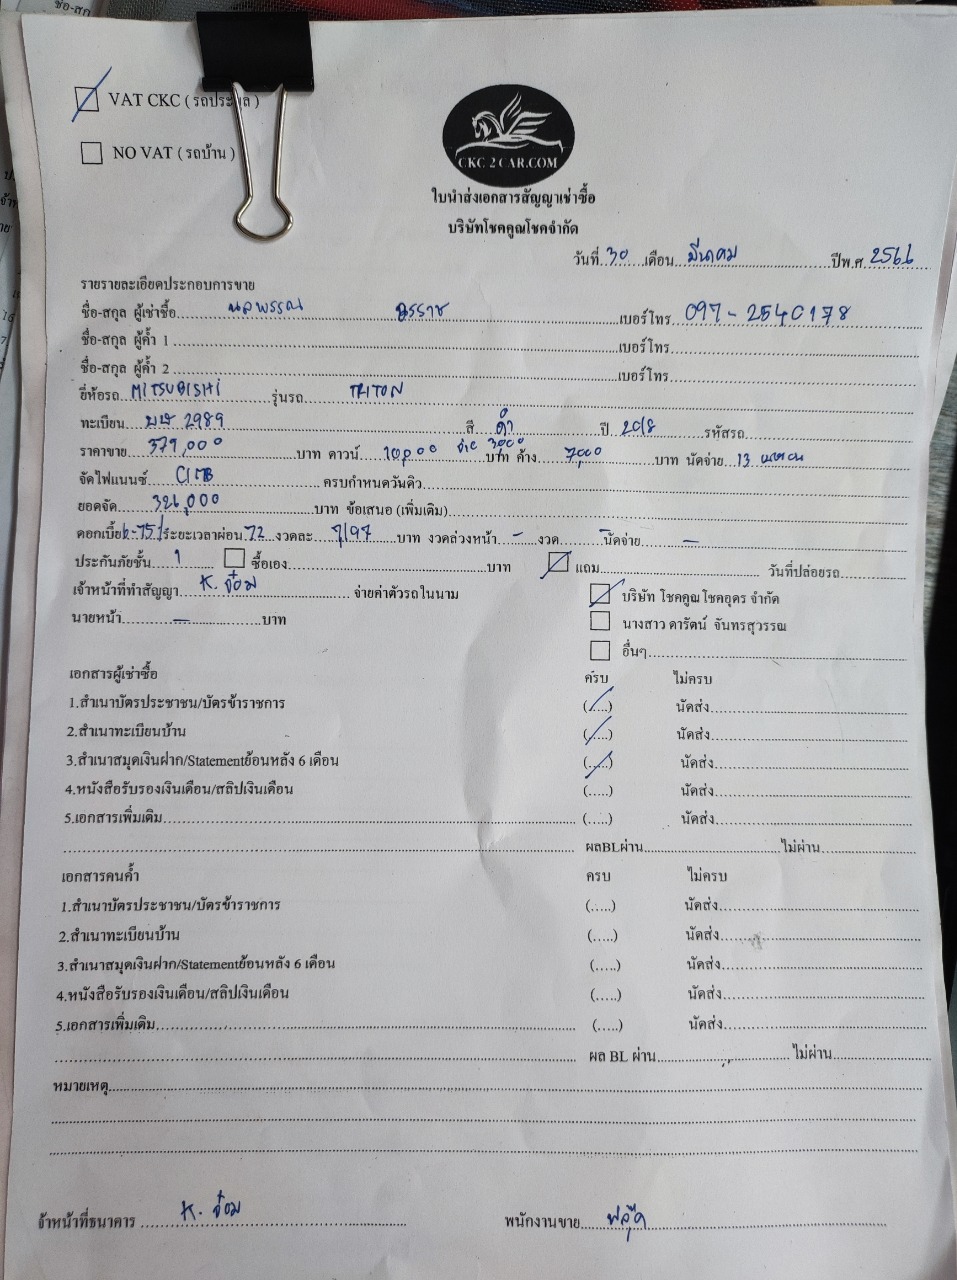 VAT CKC ( รถประมูล )
NO VAT ( รถบ้าน )
CKC 2 CAR.COM
ใบนำส่งเอกสารสัญญาเช่าซื้อ
บริษัทโชคคูณโชคจำกัด
วันที่ 30 เดือน มีนาคม ปีพ.ศ. 2566
รายรายละเอียดประกอบการขาย
ชื่อ-สกุล ผู้เช่าซื้อ เบอร์โทร 097-2540178
ชื่อ-สกุล ผู้ค้ำ 1 เบอร์โทร
ชื่อ-สกุล ผู้ค้ำ 2 เบอร์โทร
ยี่ห้อรถ MITSUBISHI รุ่นรถ TRITON
ทะเบียน 2989 สี ดำ ปี 2018 รหัสรถ
ราคาขาย 379,000 บาท ดาวน์ 10,000 จ่าย 3000 บาท ค้าง 7,000 บาท นัดจ่าย 13
จัดไฟแนนซ์ CIMB ครบกำหนดวันดิว
ยอดจัด 326,000 บาท ข้อเสนอ (เพิ่มเติม)
ดอกเบี้ย 6.75 ระยะเวลาผ่อน 72 งวดละ 7,197 บาท งวดล่วงหน้า - งวด นัดจ่าย -
ประกันภัยชั้น 1 ซื้อเอง บาท แถม วันที่ปล่อยรถ
เจ้าหน้าที่ทำสัญญา K. จ๋อม จ่ายค่าตัวรถในนาม บริษัท โชคคูณโชคอุดร จำกัด
นายหน้า - บาท นางสาว ดารัตน์ จันทรสุวรรณ
อื่นๆ
เอกสารผู้เช่าซื้อ ครบ ไม่ครบ
1.สำเนาบัตรประชาชน/บัตรข้าราชการ (.....) นัดส่ง
2.สำเนาทะเบียนบ้าน (.....) นัดส่ง
3.สำเนาสมุดเงินฝาก/Statementย้อนหลัง 6 เดือน (.....) นัดส่ง
4.หนังสือรับรองเงินเดือน/สลิปเงินเดือน (.....) นัดส่ง
5.เอกสารเพิ่มเติม (.....) นัดส่ง
ผลBLผ่าน ไม่ผ่าน
เอกสารคนค้ำ ครบ ไม่ครบ
1.สำเนาบัตรประชาชน/บัตรข้าราชการ (.....) นัดส่ง
2.สำเนาทะเบียนบ้าน (.....) นัดส่ง
3.สำเนาสมุดเงินฝาก/Statementย้อนหลัง 6 เดือน (.....) นัดส่ง
4.หนังสือรับรองเงินเดือน/สลิปเงินเดือน (.....) นัดส่ง
5.เอกสารเพิ่มเติม (.....) นัดส่ง
ผล BL ผ่าน ไม่ผ่าน
หมายเหตุ
จ้าหน้าที่ธนาคาร K. จ๋อม พนักงานขาย ฟลุ๊ค